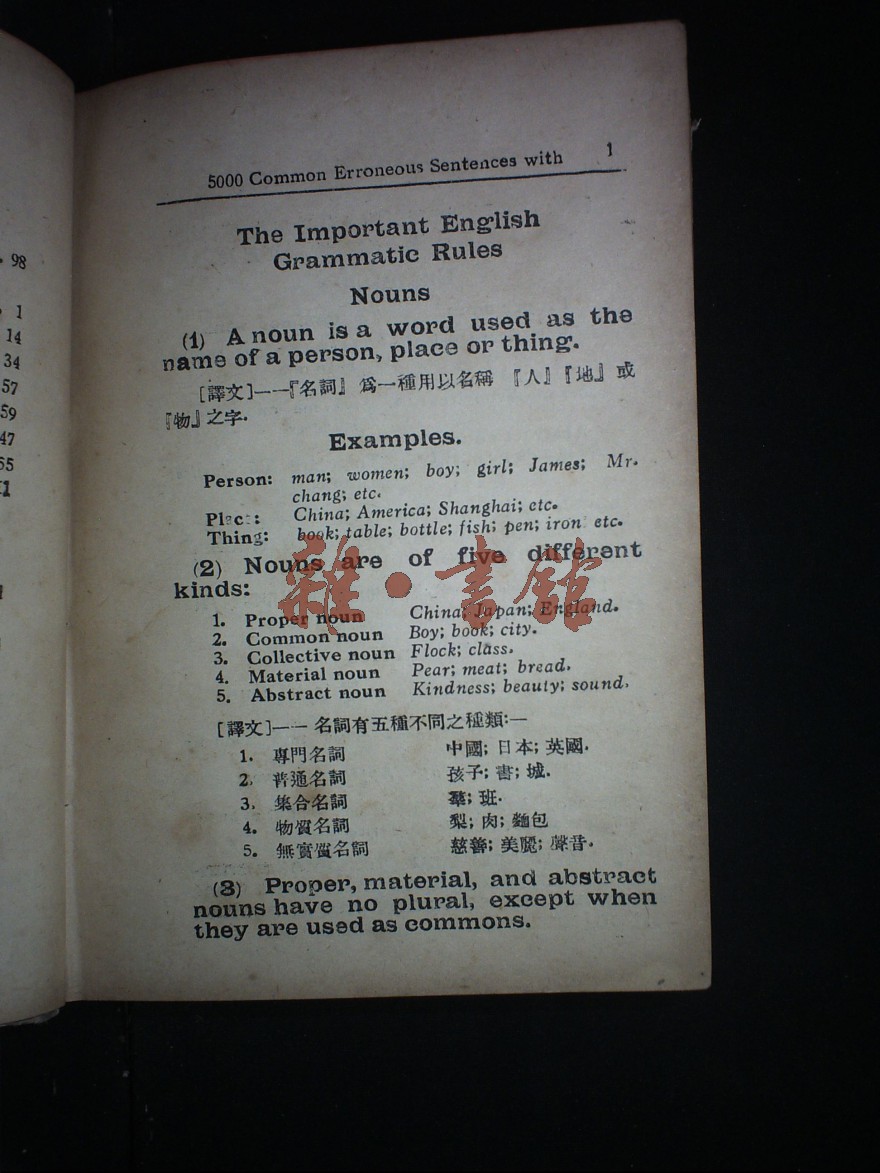 5000 Common Erroneous Sentences with 1
The Important English
Grammatic Rules
Nouns
(1) A noun is a word used as the
name of a person, place or thing.
[譯文]——『名詞』 爲一種用以名稱 『人』『地』或
『物』之字.
Examples.
Person: man; women; boy; girl; James; Mr.
chang; etc.
Place: China; America; Shanghai; etc.
Thing: book; table; bottle; fish; pen; iron etc.
(2) Nouns are of five different
kinds:
1. Proper noun China; Japan; England.
2. Common noun Boy; book; city.
3. Collective noun Flock; class.
4. Material noun Pear; meat; bread.
5. Abstract noun Kindness; beauty; sound.
[譯文]—— 名詞有五種不同之種類:—
1. 專門名詞 中國; 日本; 英國.
2. 普通名詞 孩子; 書; 城.
3. 集合名詞 羣; 班.
4. 物質名詞 梨; 肉; 麵包
5. 無實質名詞 慈善; 美麗; 聲音.
(3) Proper, material, and abstract
nouns have no plural, except when
they are used as commons.
98
1
14
34
57
59
47
55
雜·書館